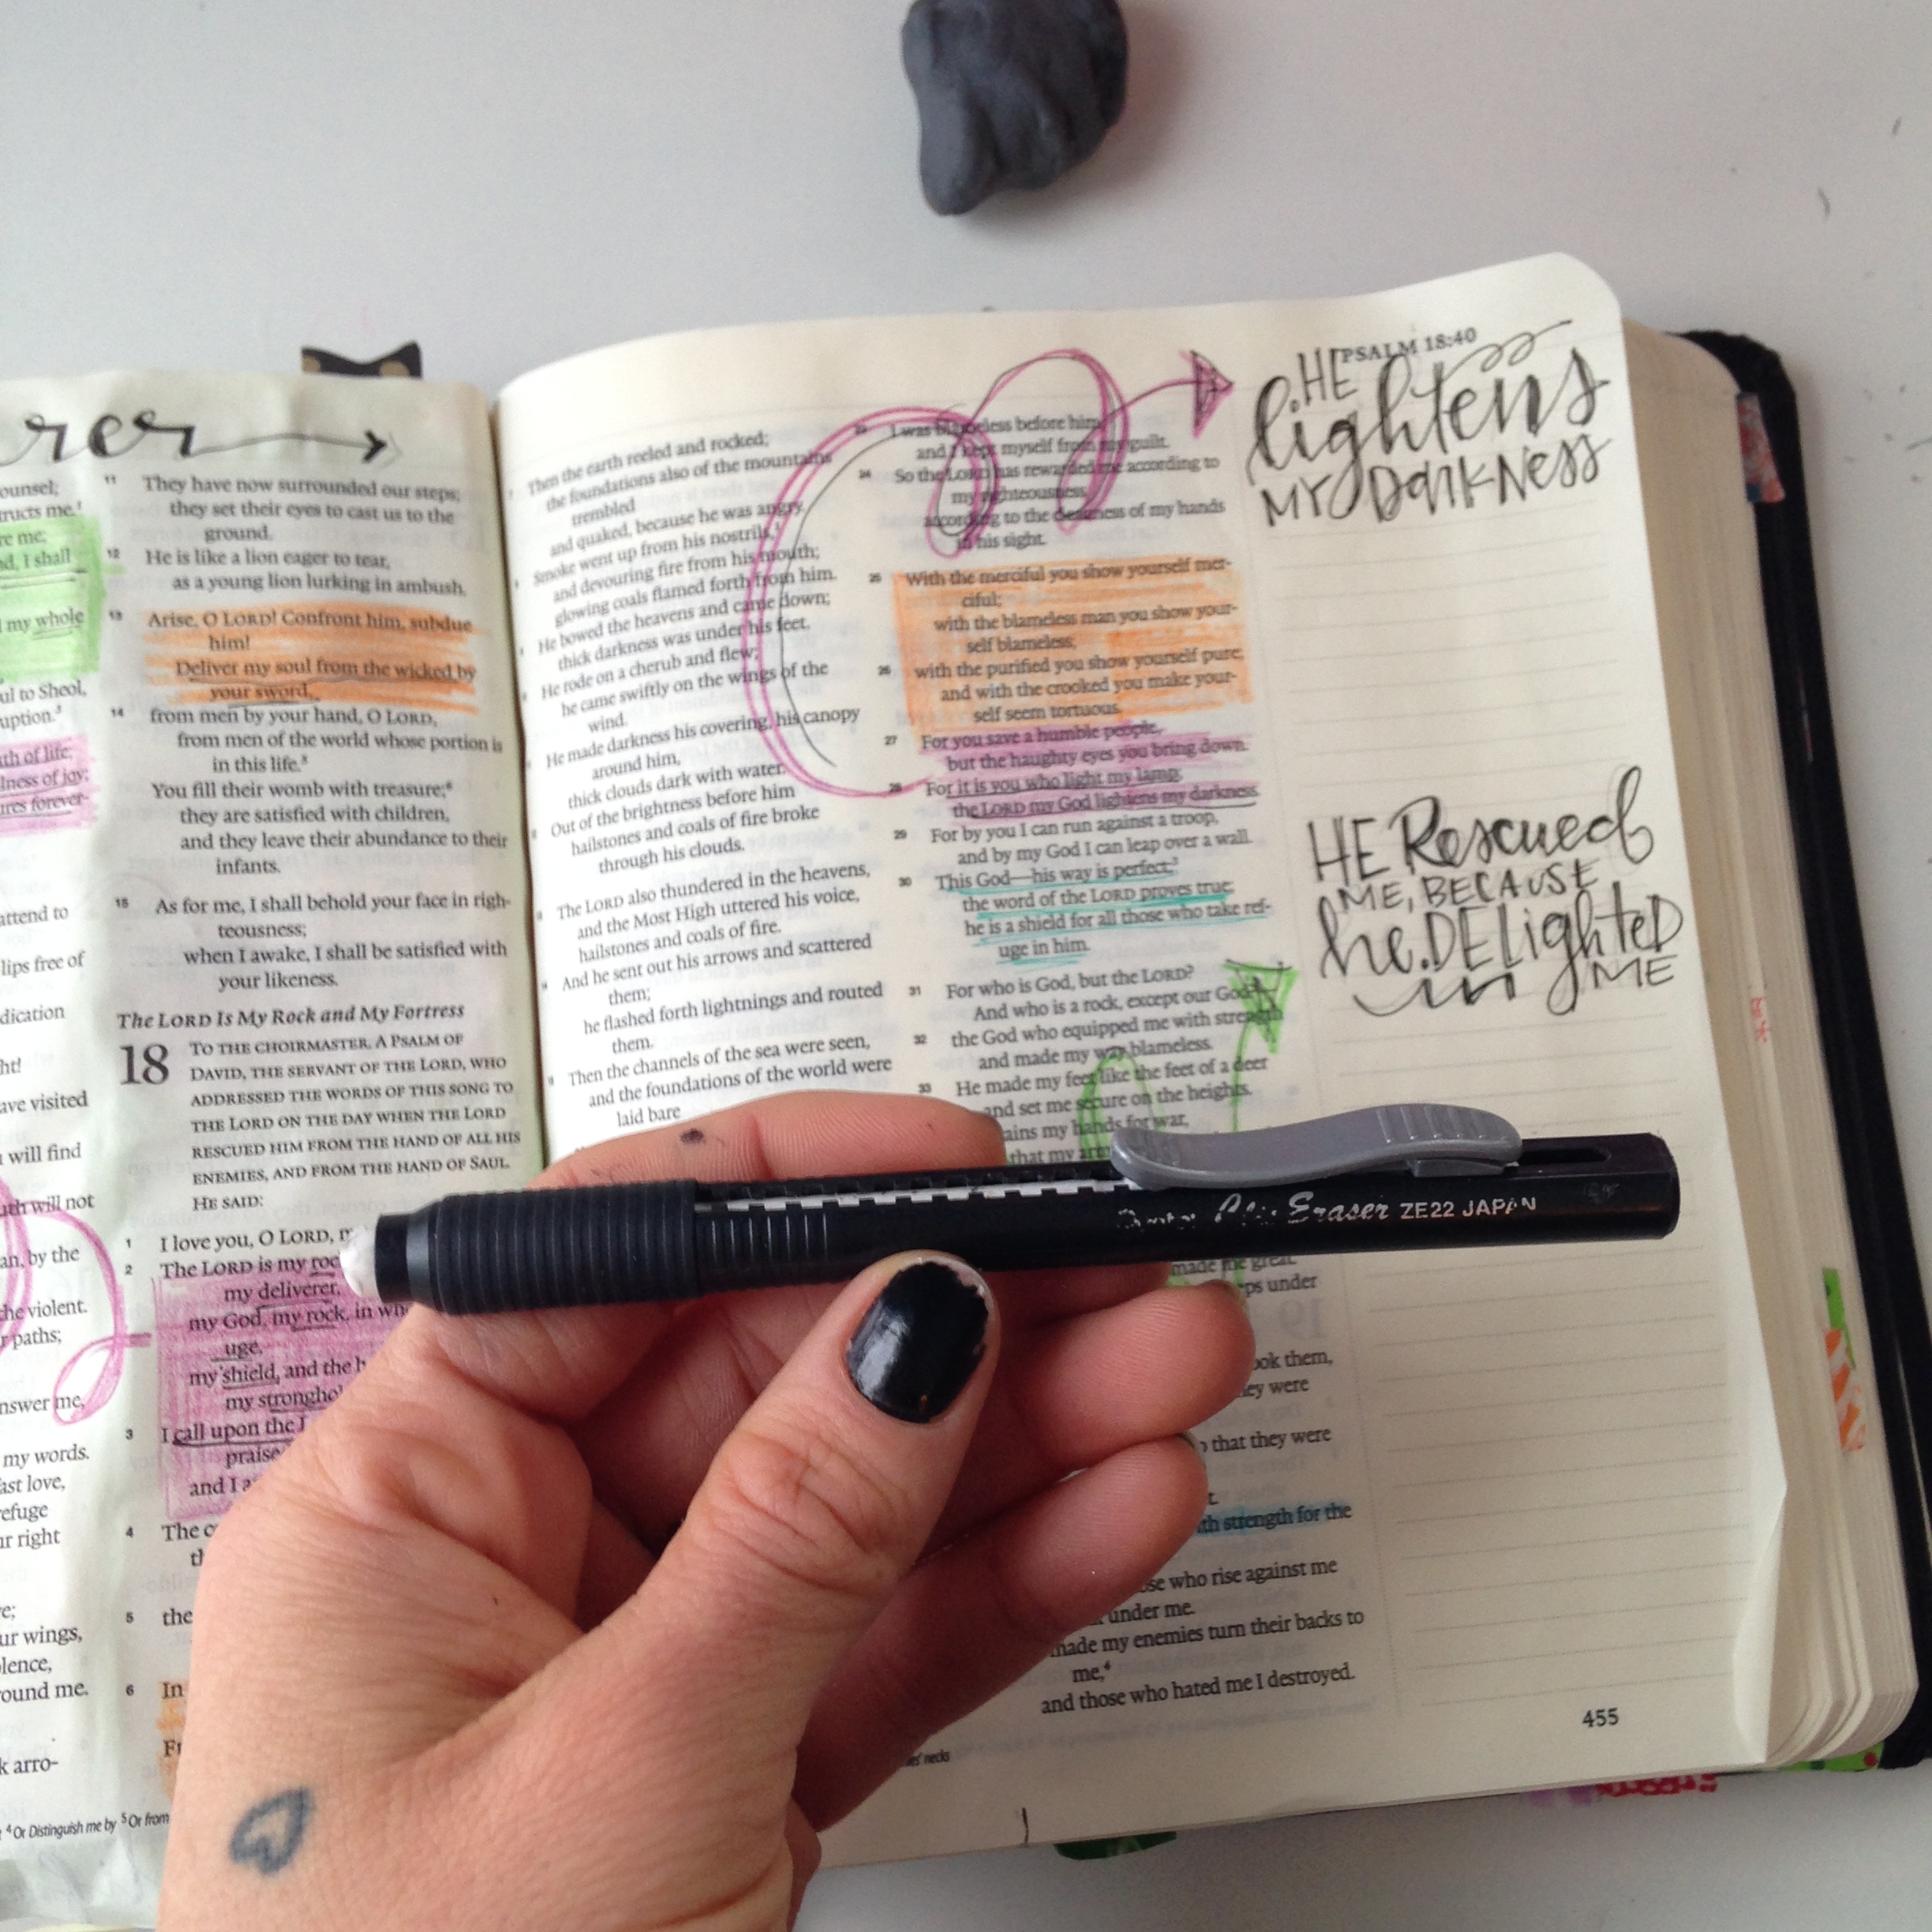 rer
ounsel;
tructs me.¹
re me;
I shall
my whole
ul to Sheol,
uption.³
th of life;
lness of joy;
ures forever-
attend to
lips free of
dication
ht!
ave visited
will find
will not
an, by the
the violent.
paths;
nswer me,
my words.
ast love,
refuge
ur right
ur wings,
olence,
round me.
k arro-
⁴ Or Distinguish me by ⁵ Or from
11 They have now surrounded our steps;
they set their eyes to cast us to the
ground.
12 He is like a lion eager to tear,
as a young lion lurking in ambush.
13 Arise, O LORD! Confront him, subdue
him!
Deliver my soul from the wicked by
your sword,
14 from men by your hand, O LORD,
from men of the world whose portion is
in this life.⁵
You fill their womb with treasure;⁶
they are satisfied with children,
and they leave their abundance to their
infants.
15 As for me, I shall behold your face in righ-
teousness;
when I awake, I shall be satisfied with
your likeness.
The LORD Is My Rock and My Fortress
18 TO THE CHOIRMASTER. A PSALM OF
DAVID, THE SERVANT OF THE LORD, WHO
ADDRESSED THE WORDS OF THIS SONG TO
THE LORD ON THE DAY WHEN THE LORD
RESCUED HIM FROM THE HAND OF ALL HIS
ENEMIES, AND FROM THE HAND OF SAUL.
HE SAID:
1 I love you, O LORD,
2 The LORD is my roc
my deliverer,
my God, my rock, in
uge,
my shield, and the
my strongho
3 I call upon the
praise
and I a
4 The
5 the
6 In
Then the earth reeled and rocked;
the foundations also of the mountains
trembled
and quaked, because he was angry.
Smoke went up from his nostrils,
and devouring fire from his mouth;
glowing coals flamed forth from him.
He bowed the heavens and came down;
thick darkness was under his feet.
He rode on a cherub and flew;
he came swiftly on the wings of the
wind.
He made darkness his covering, his canopy
around him,
thick clouds dark with water.
Out of the brightness before him
hailstones and coals of fire broke
through his clouds.
The LORD also thundered in the heavens,
and the Most High uttered his voice,
hailstones and coals of fire.
And he sent out his arrows and scattered
them;
he flashed forth lightnings and routed
them.
Then the channels of the sea were seen,
and the foundations of the world were
laid bare
23 I was blameless before him,
and I kept myself from my guilt.
24 So the LORD has rewarded me according to
my righteousness,
according to the cleanness of my hands
in his sight.
25 With the merciful you show yourself mer-
ciful;
with the blameless man you show your-
self blameless;
26 with the purified you show yourself pure;
and with the crooked you make your-
self seem tortuous.
27 For you save a humble people,
but the haughty eyes you bring down.
28 For it is you who light my lamp;
the LORD my God lightens my darkness.
29 For by you I can run against a troop,
and by my God I can leap over a wall.
30 This God—his way is perfect;³
the word of the LORD proves true;
he is a shield for all those who take ref-
uge in him.
31 For who is God, but the LORD?
And who is a rock, except our God?—
32 the God who equipped me with strength
and made my way blameless.
33 He made my feet like the feet of a deer
and set me secure on the heights.
ains my hands for war,
that my arm
made me great.
ps under
ook them,
ey were
that they were
strength for the
ose who rise against me
under me.
made my enemies turn their backs to
me,⁴
and those who hated me I destroyed.
necks
PSALM 18:40
HE
lightens
MY DarkNess
HE Rescued
ME, BECAUSE
he.DELighteD
in ME
Eraser ZE22 JAPAN
455